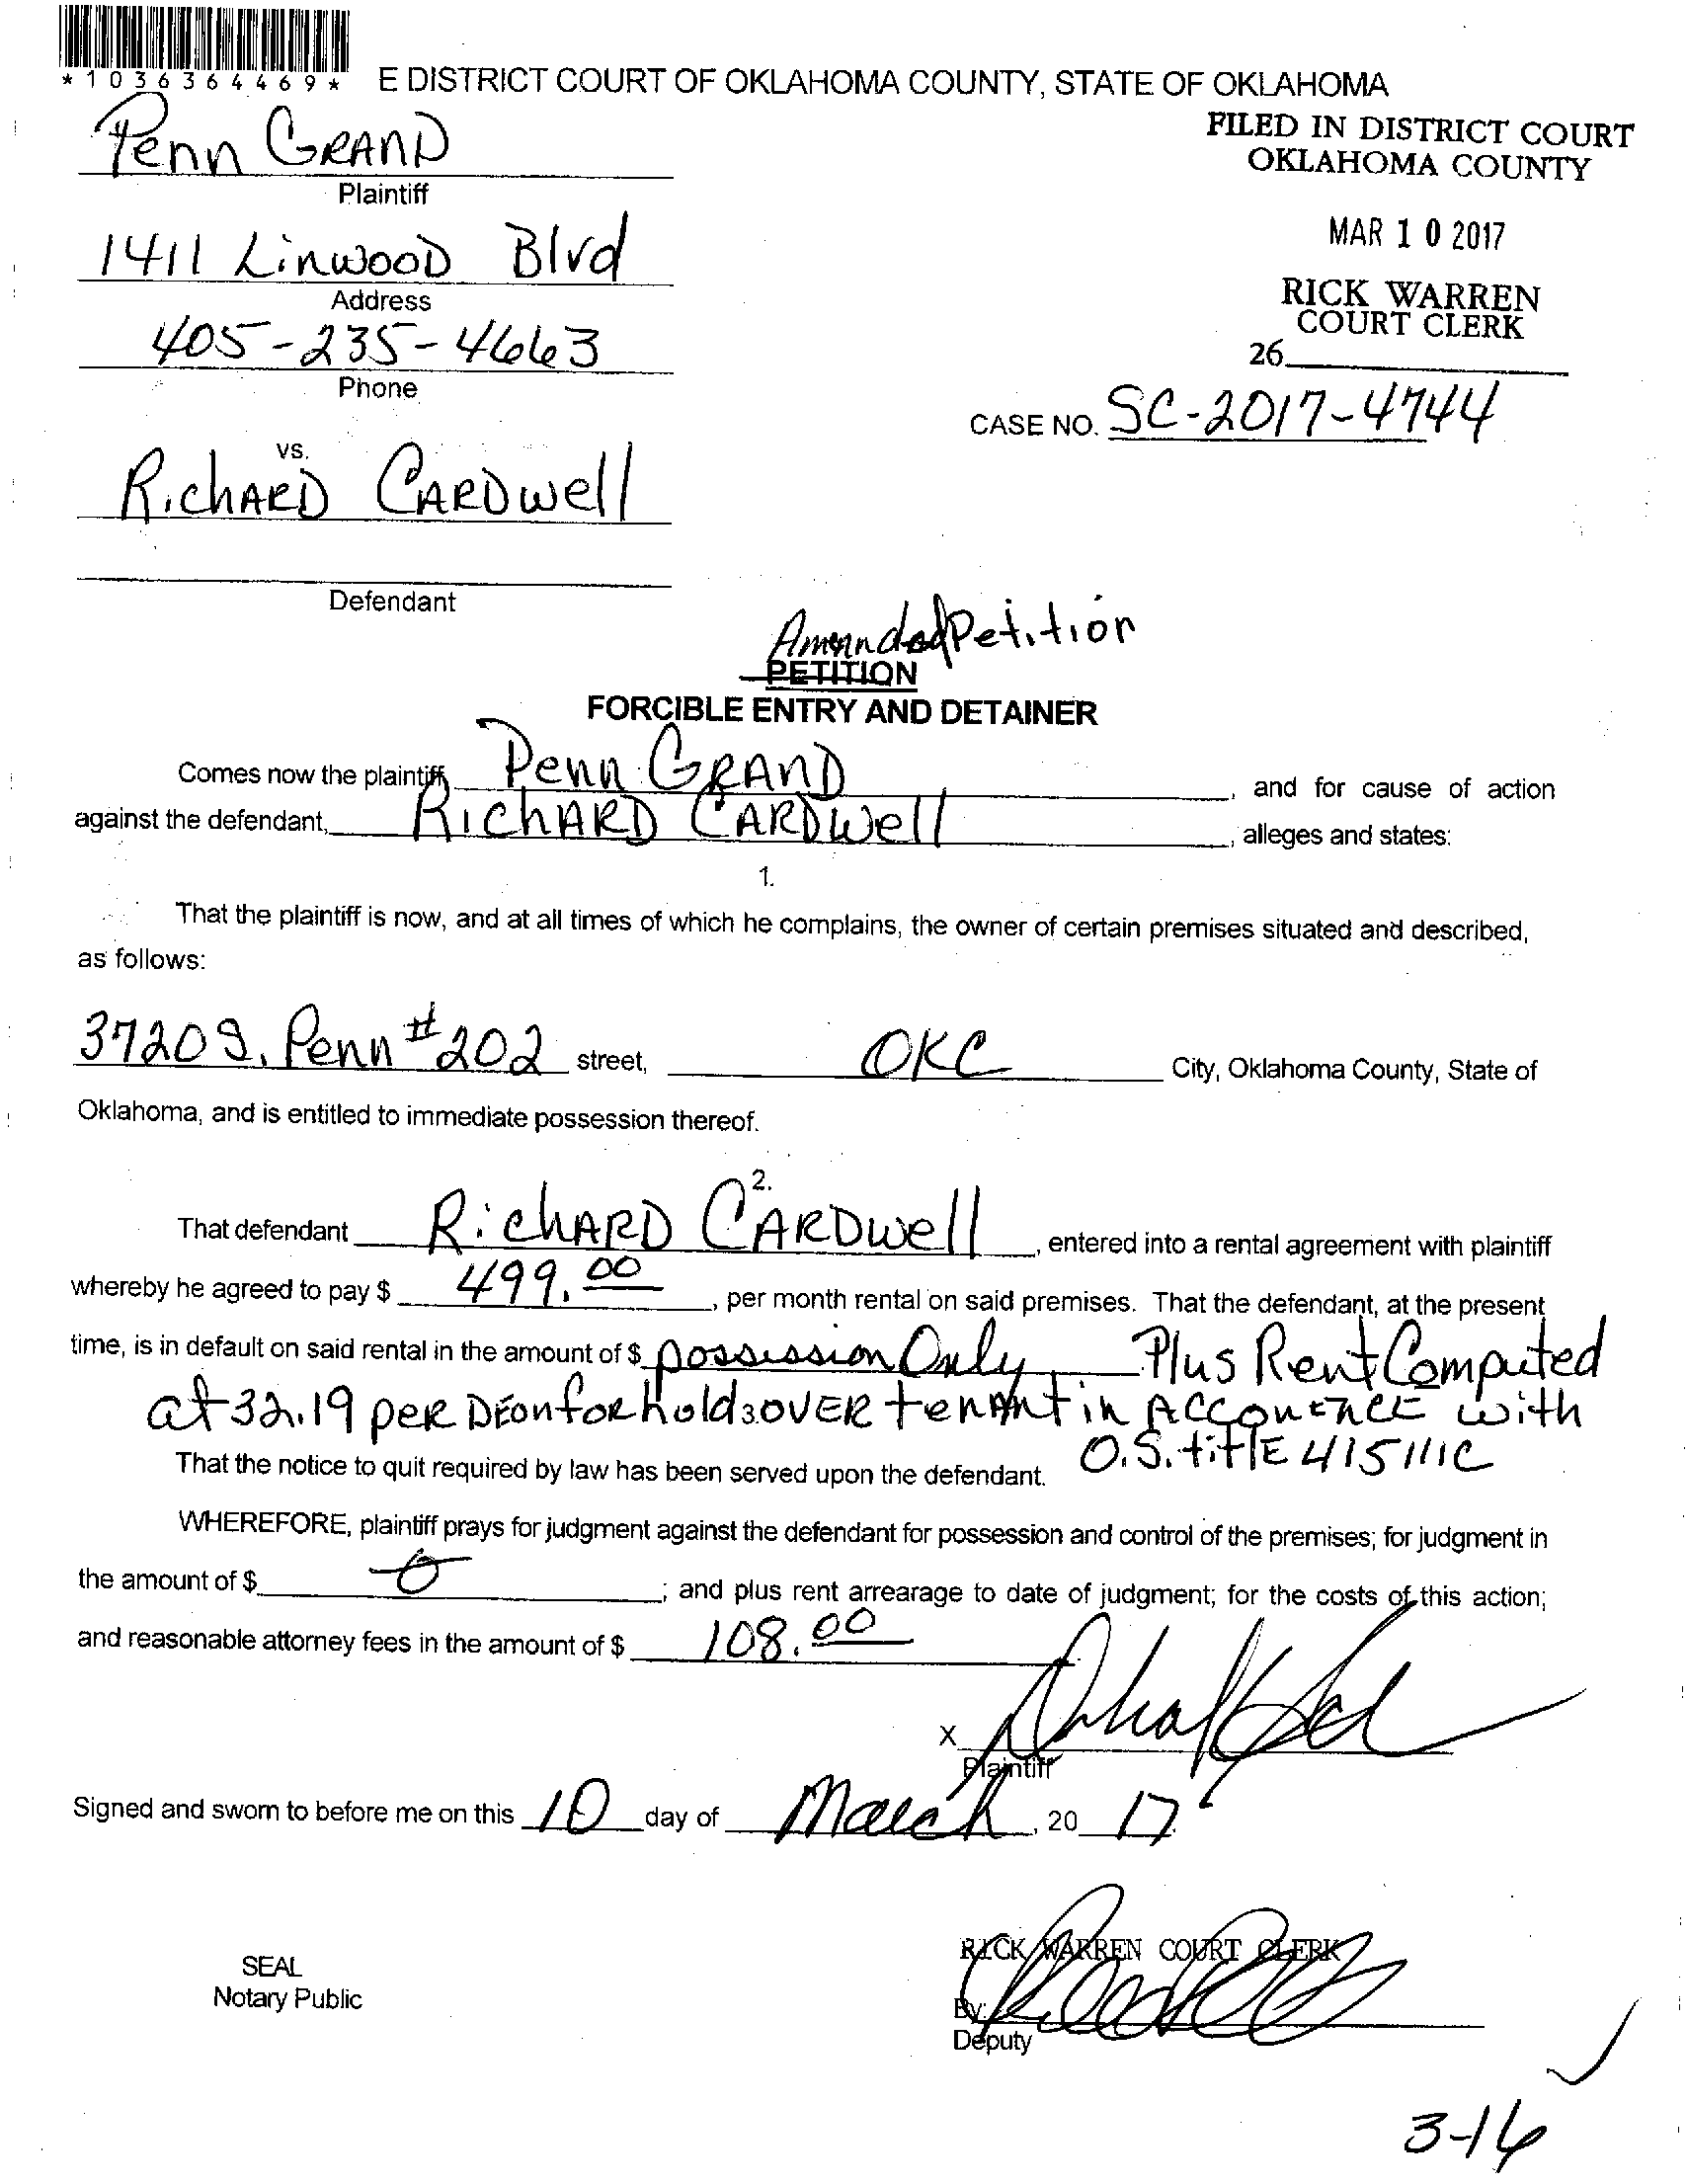 *1036364469*
E DISTRICT COURT OF OKLAHOMA COUNTY, STATE OF OKLAHOMA
Penn GRAND
Plaintiff
FILED IN DISTRICT COURT
OKLAHOMA COUNTY
1411 LinwooD Blvd
Address
MAR 10 2017
405-235-4663
Phone
RICK WARREN
COURT CLERK
26
CASE NO. SC-2017-4744
vs.
RichARD CARDwell
Defendant
Amended Petition
PETITION
FORCIBLE ENTRY AND DETAINER
Comes now the plaintiff Penn GRAND, and for cause of action
against the defendant, RIChARD CARDwell, alleges and states:
1.
That the plaintiff is now, and at all times of which he complains, the owner of certain premises situated and described,
as follows:
3720 S. Penn #202 street, OKC City, Oklahoma County, State of
Oklahoma, and is entitled to immediate possession thereof.
2.
That defendant RichARD CARDwell, entered into a rental agreement with plaintiff
whereby he agreed to pay $ 499.00, per month rental on said premises. That the defendant, at the present
time, is in default on said rental in the amount of $ possession Only Plus Rent Computed
at 32.19 peR for hold OVER tenAnt in with
O.S. titlE 41 111C
That the notice to quit required by law has been served upon the defendant.
WHEREFORE, plaintiff prays for judgment against the defendant for possession and control of the premises; for judgment in
the amount of $ 0; and plus rent arrearage to date of judgment; for the costs of this action;
and reasonable attorney fees in the amount of $ 108.00
X
Plaintiff
Signed and sworn to before me on this 10 day of March, 2017.
RICK WARREN COURT CLERK
SEAL
Notary Public
By:
Deputy
3-16